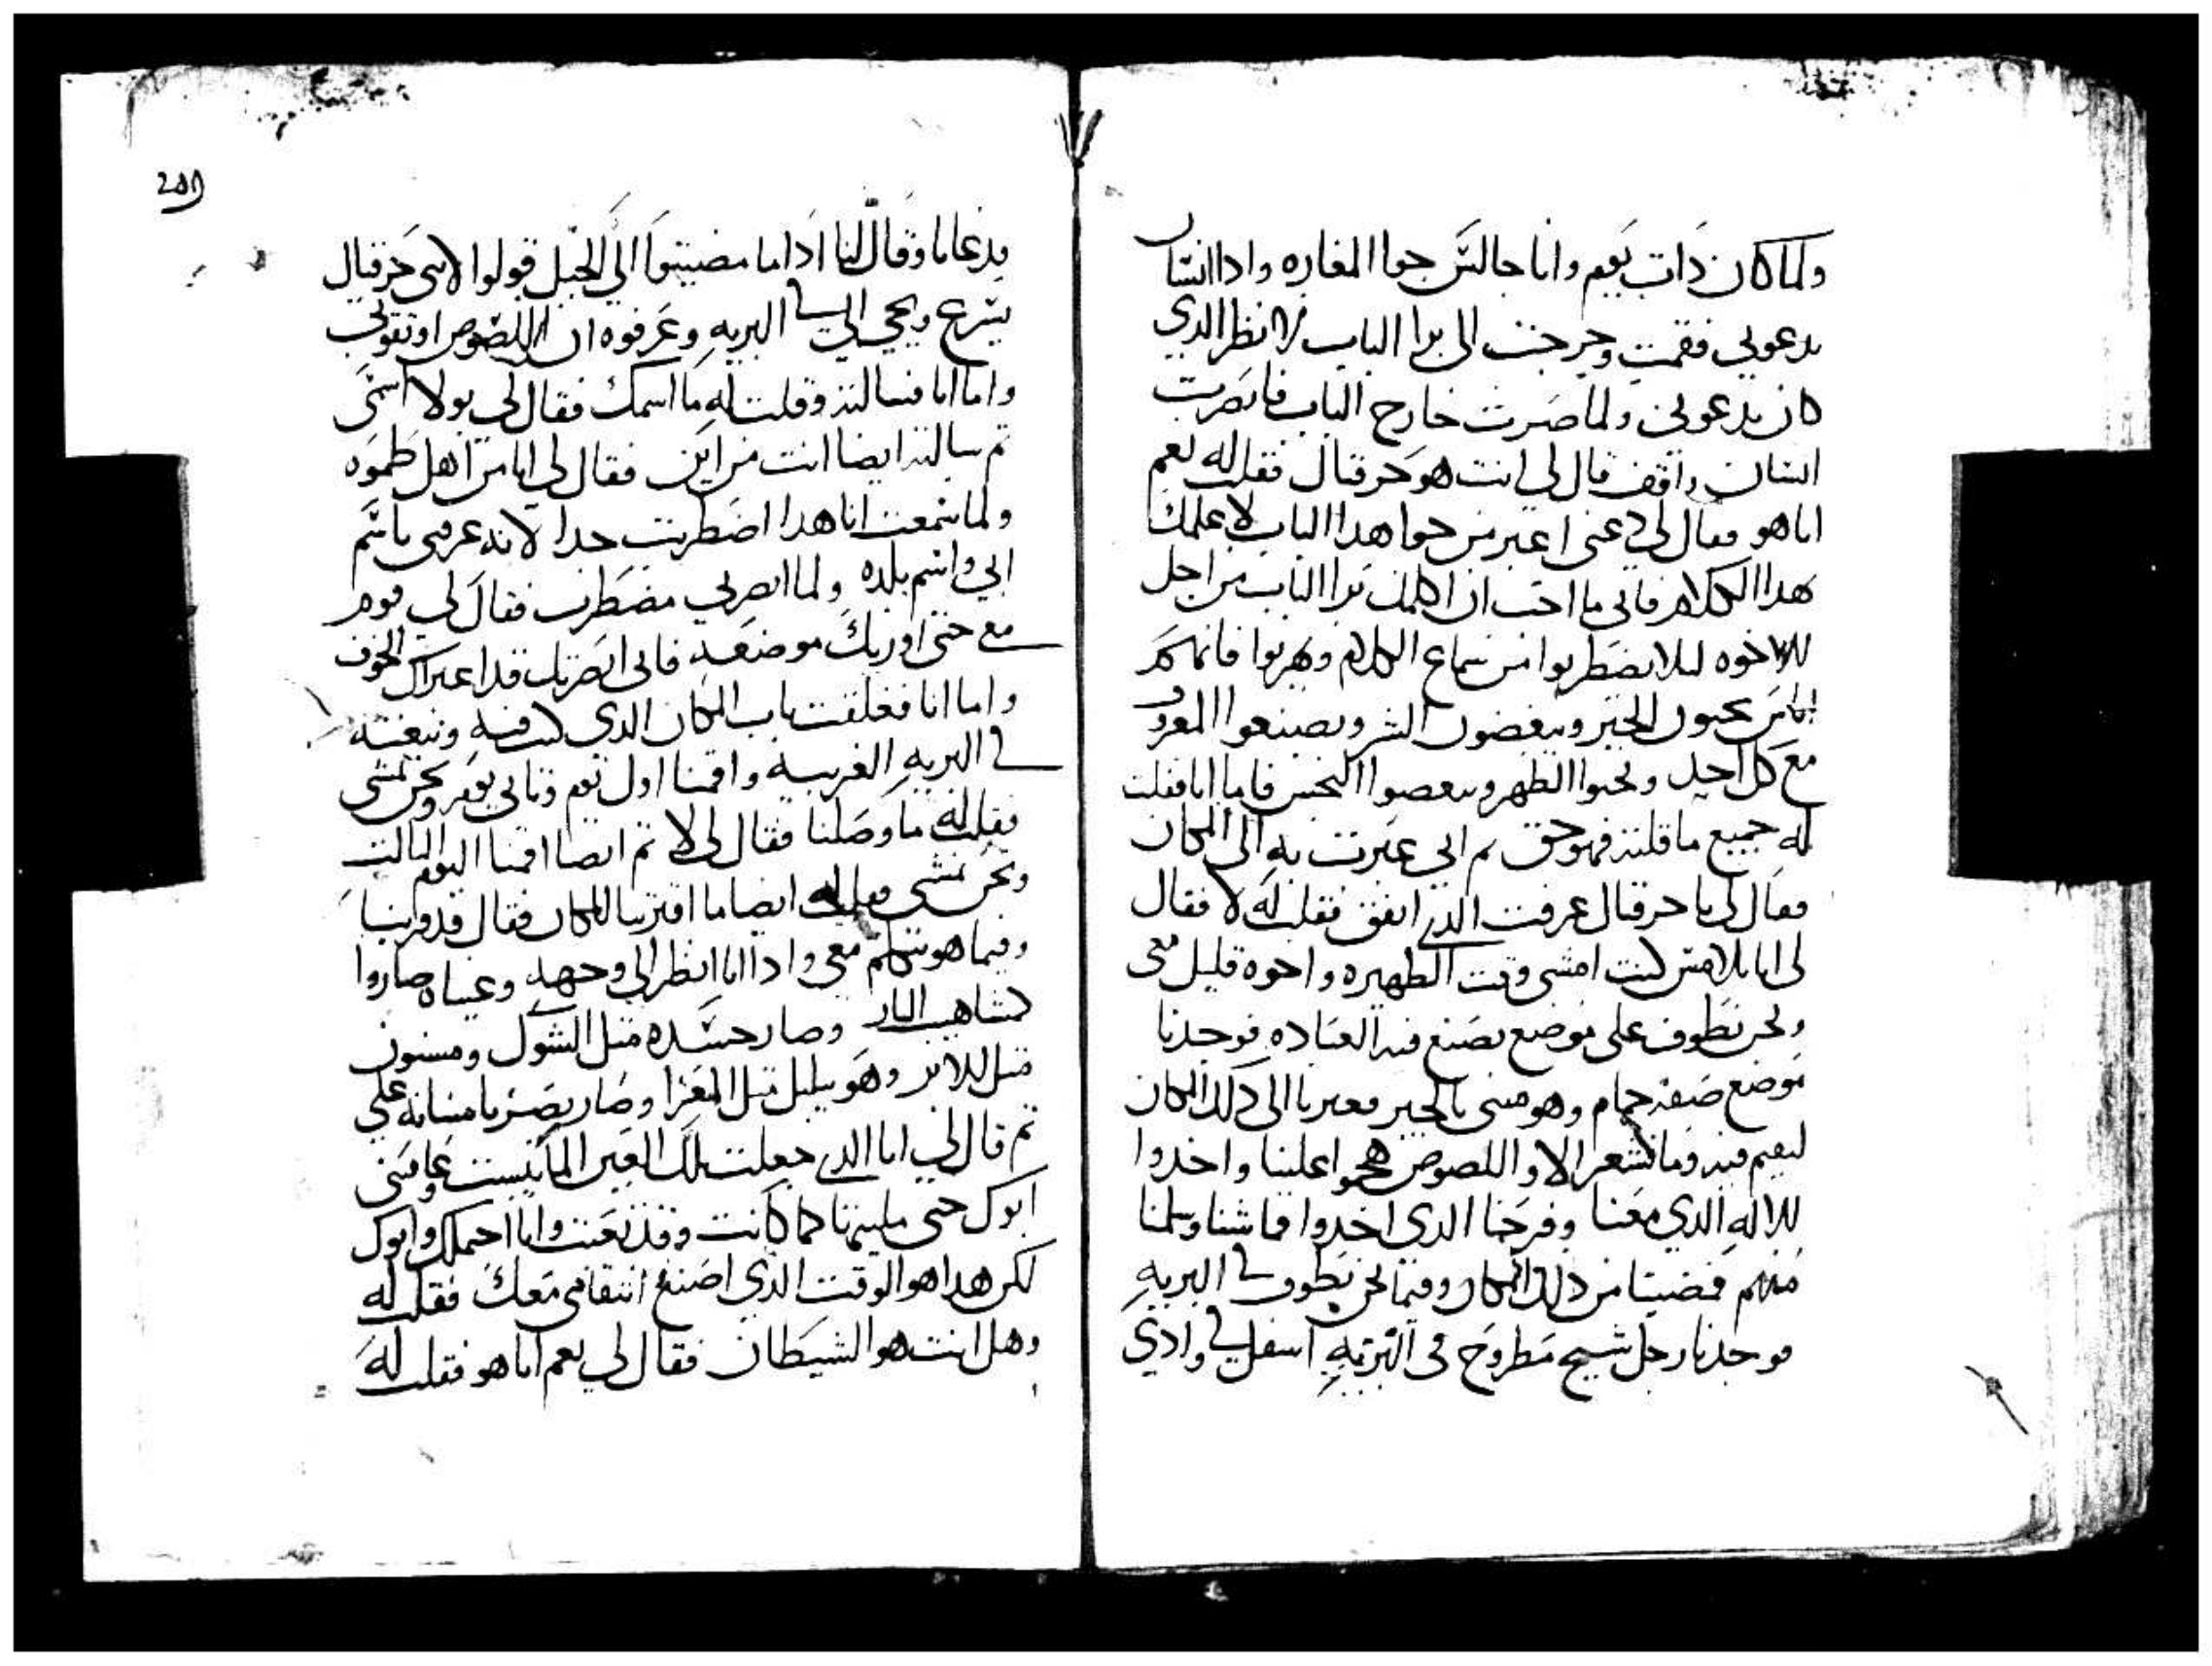 ولما كان ذات يوم وانا جالس جوا المغاره وادا انسان
يدعوني فقمت وخرجت الى برا الباب لانظر الدي
كان يدعوني ولما صرت خارج الباب فابصرت
انسان واقف قال لي انت هو حزقيال فقلت له نعم
انا هو فقال لي دعني اعبر من جوا هدا الباب لاعلمك
هدا الكلام فاني ما احب ان اكلمك برا الباب من اجل
الاخوه ليلا يضطربوا من سماع الكلام ويهربوا فانهم
اناس يحبون الخير ويبغضون الشر ويصنعوا المعروف
مع كل احد ويحبوا الطهر ويبغضوا النجس فاما انا فقلت
له جميع ما قلته فهو حق ثم اني عبرت به الى المكان
فقال لي يا حزقيال عرفت الدي اتفق فقلت له لا فقال
لي انا بالامس كنت امشي وقت الظهيره واخوه قليل معي
ونحن نطوف على موضع نصنع فيه العباده فوجدنا
موضع صفة حمام وهو مبني بالحجر فعبرنا الى دلك المكان
لنقيم فيه وما نشعر الا واللصوص هجموا علينا واخدوا
الاله الدي معنا وفرحنا الدي اخدوا قماشنا وسلمنا
منهم فمضينا من دلك المكان وفيما نحن نطوف في البريه
فوجدنا رجل شيخ مطروح في البريه اسفل في وادي
209
فدعانا وقال لنا ادا ما مضيتوا الى الجبل قولوا لابني حزقيال
يسرع ويجي الي الى البريه وعرفوه ان اللصوص اوثقوني
واما انا فسالته وقلت له ما اسمك فقال لي بولا اسمي
ثم سالته ايضا انت من اين فقال لي انا من اهل طموه
ولما سمعت انا هدا اضطربت جدا لانه عرفني باسم
ابي واسم بلده ولما ابصرني مضطرب فقال لي قوم
معي حتى اوريك موضعه فاني ابصرتك قد اعتراك الخوف
واما انا فغلقت باب المكان الدي كنت فيه وتبعته
في البريه الغربيه واقمنا اول يوم وثاني يوم ونحن نمشي
فقلت له ما وصلنا فقال لي لا ثم ايضا اقمنا اليوم الثالث
ونحن نمشي فقلت له ايضا ما اقتربنا للمكان فقال قد قربنا
وفيما هو يتكلم معي وادا انا انظر الى وجهه وعيناه صاروا
كمشاهيب النار وصار جسده مثل الشوك ومسنون
مثل الابر وهو يبلبل مثل المعزا وصار يصر باسنانه علي
ثم قال لي انا الدي جعلت تلك العين الما يبست
ابوك حتى مليتها كما كانت وقد تعبت وانا احتملك وابوك
لكن هدا هو الوقت الدي اصنع انتقامي معك فقلت له
وهل انت هو الشيطان فقال لي نعم انا هو فقلت له